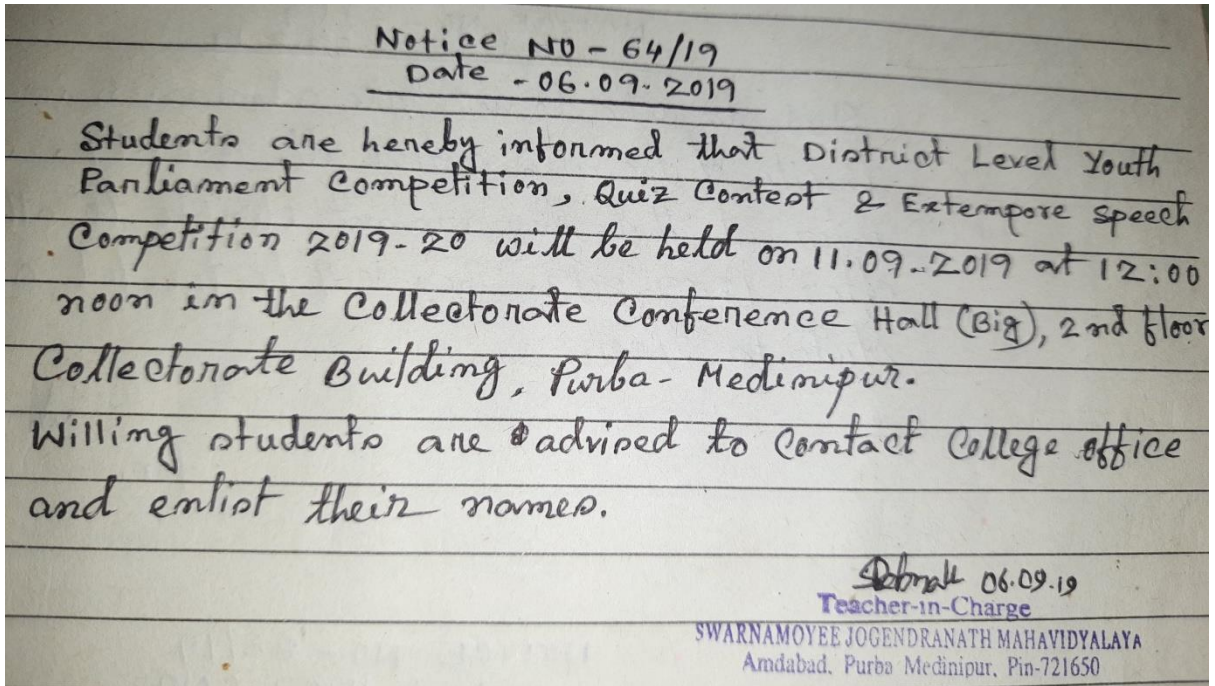 Notice NO - 64/19
Date - 06.09.2019
Students are hereby informed that District Level Youth
Parliament Competition, Quiz Contest & Extempore Speech
Competition 2019-20 will be held on 11.09.2019 at 12:00
noon in the Collectorate Conference Hall (Big), 2nd floor
Collectorate Building, Purba-Medinipur.
Willing students are advised to Contact College office
and enlist their names.
06.09.19
Teacher-in-Charge
SWARNAMOYEE JOGENDRANATH MAHAVIDYALAYA
Amdabad, Purba Medinipur, Pin-721650